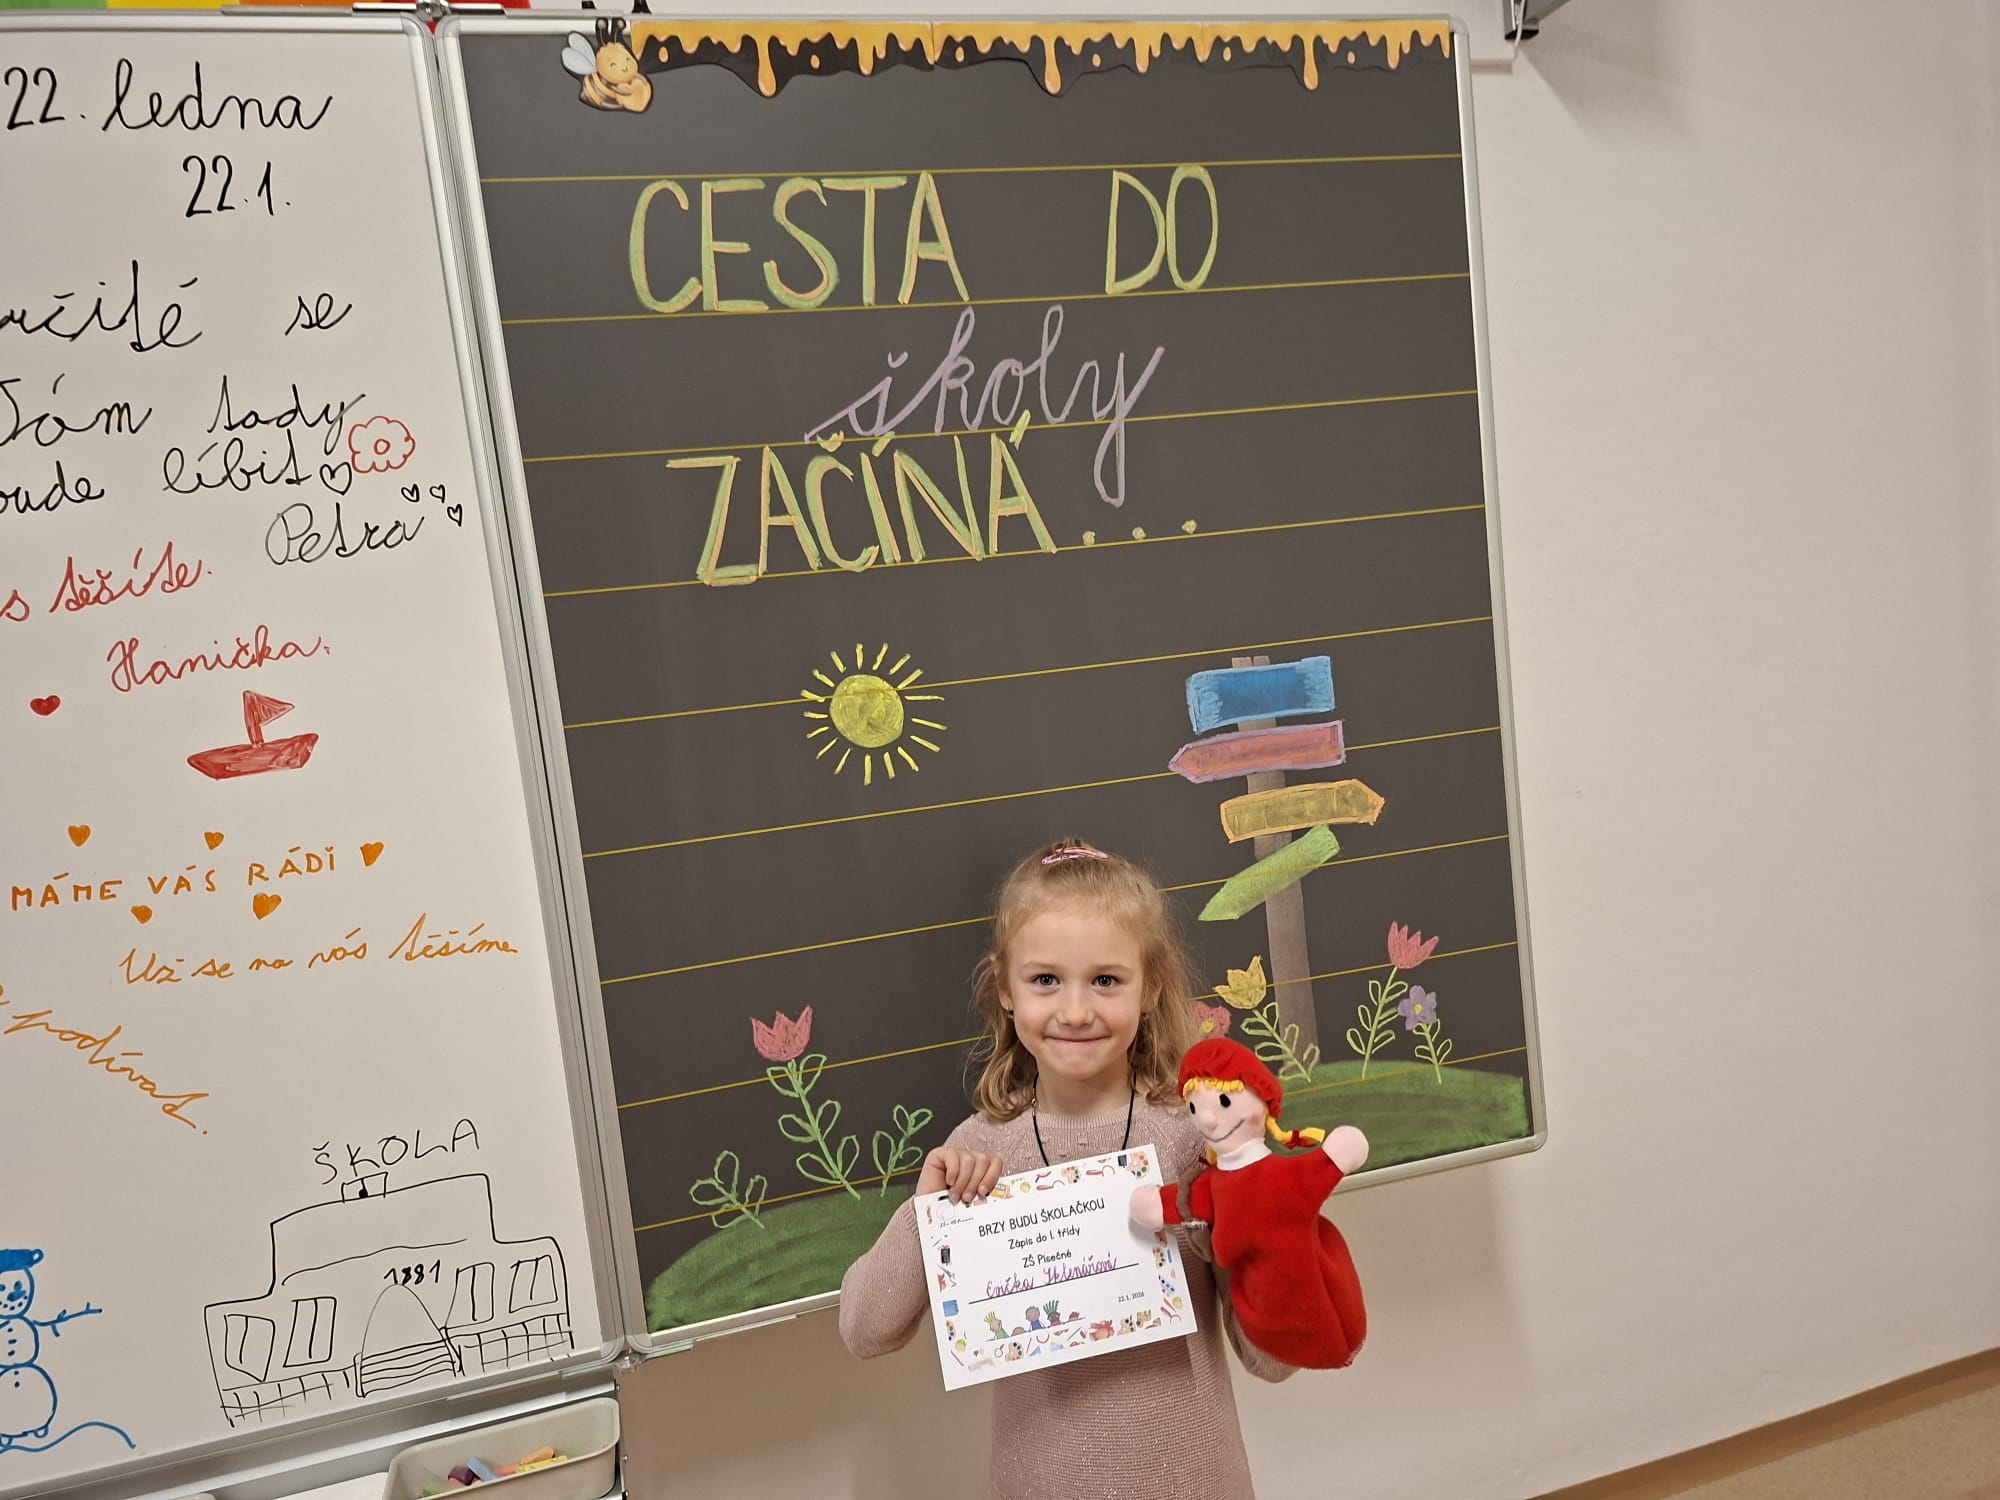 22. ledna
22.1.
určitě se
Vám tady
bude líbit
Petra
s těšíte.
Hanička.
MÁME VÁS RÁDI
Už se na vás těšíme
podívat.
ŠKOLA
1881
CESTA DO
školy
ZAČÍNÁ...
BRZY BUDU ŠKOLAČKOU
Zápis do 1. třídy
ZŠ Písečné
Enička Sklenářová
22.1. 2026